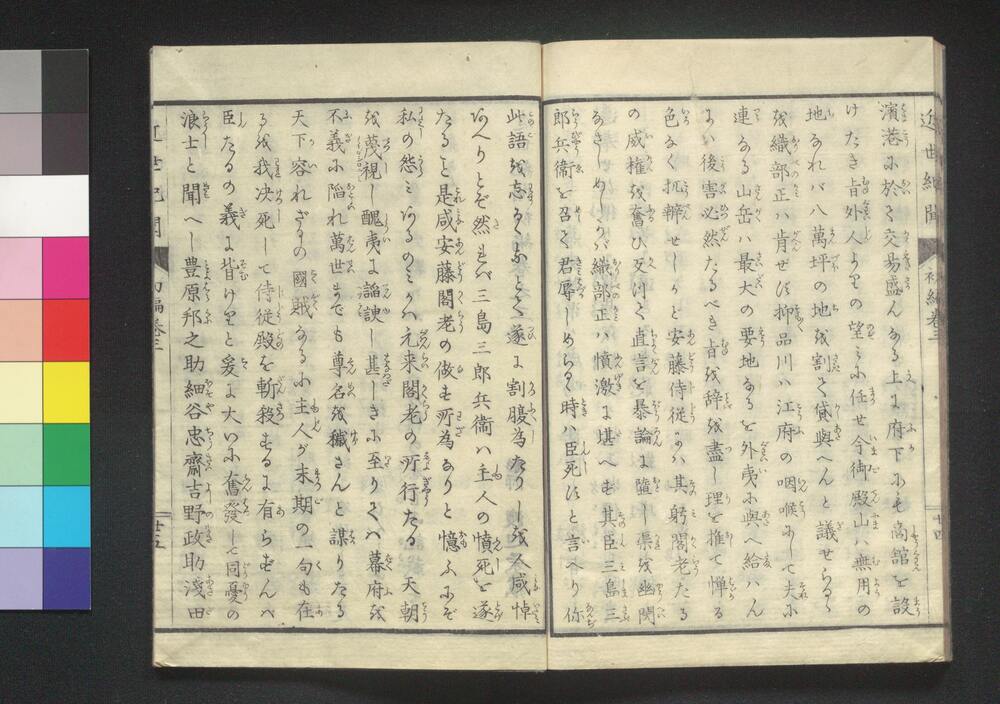 近世紀聞 初編巻三 廿四
濱港に於て交易盛んなる上は府下にも商舘を設
けたき旨外人よりの望みに任せ今御殿山ハ無用の
地なれバ八萬坪の地を割て貸與へんと議せらるゝ
を織部正ハ肯ぜず抑品川ハ江府の咽喉にして夫に
連なる山岳ハ最大の要地なるを外夷に與へ給ハん
にハ後害必然たるべき旨を辞を盡し理を推て憚る
色なく抗辨せしかど安藤侍従にハ其躬閣老たる
の威権を奮ひ反つて直言を暴論に堕し渠を幽閉
なさしめしかバ織部正ハ憤激に堪へず其臣三島三
郎兵衛を召て君辱しめらるゝ時ハ臣死すと言へり你
此語を忘るゝなとて遂に割腹為たりしを人咸悼
あへりとぞ然れバ三島三郎兵衛ハ主人の憤死を遂
たること是咸安藤閣老の做す所為なりと憶ふにぞ
私の怨みあるのミかハ元来閣老の所行たる天朝
を蔑視し醜夷に諂諛し甚しきに至りてハ幕府を
不義に陥れ萬世までも尊名を穢さんと謀りたる
天下容れざるの國賊なるに主人が末期の一句も在
るを我決死して侍従殿を斬殺するに有らずんバ
臣たるの義に背けりと爰に大いに奮發して同憂の
浪士と聞へし豊原邦之助細谷忠齋吉野政助淺田
近世紀聞 初編巻三 廿五